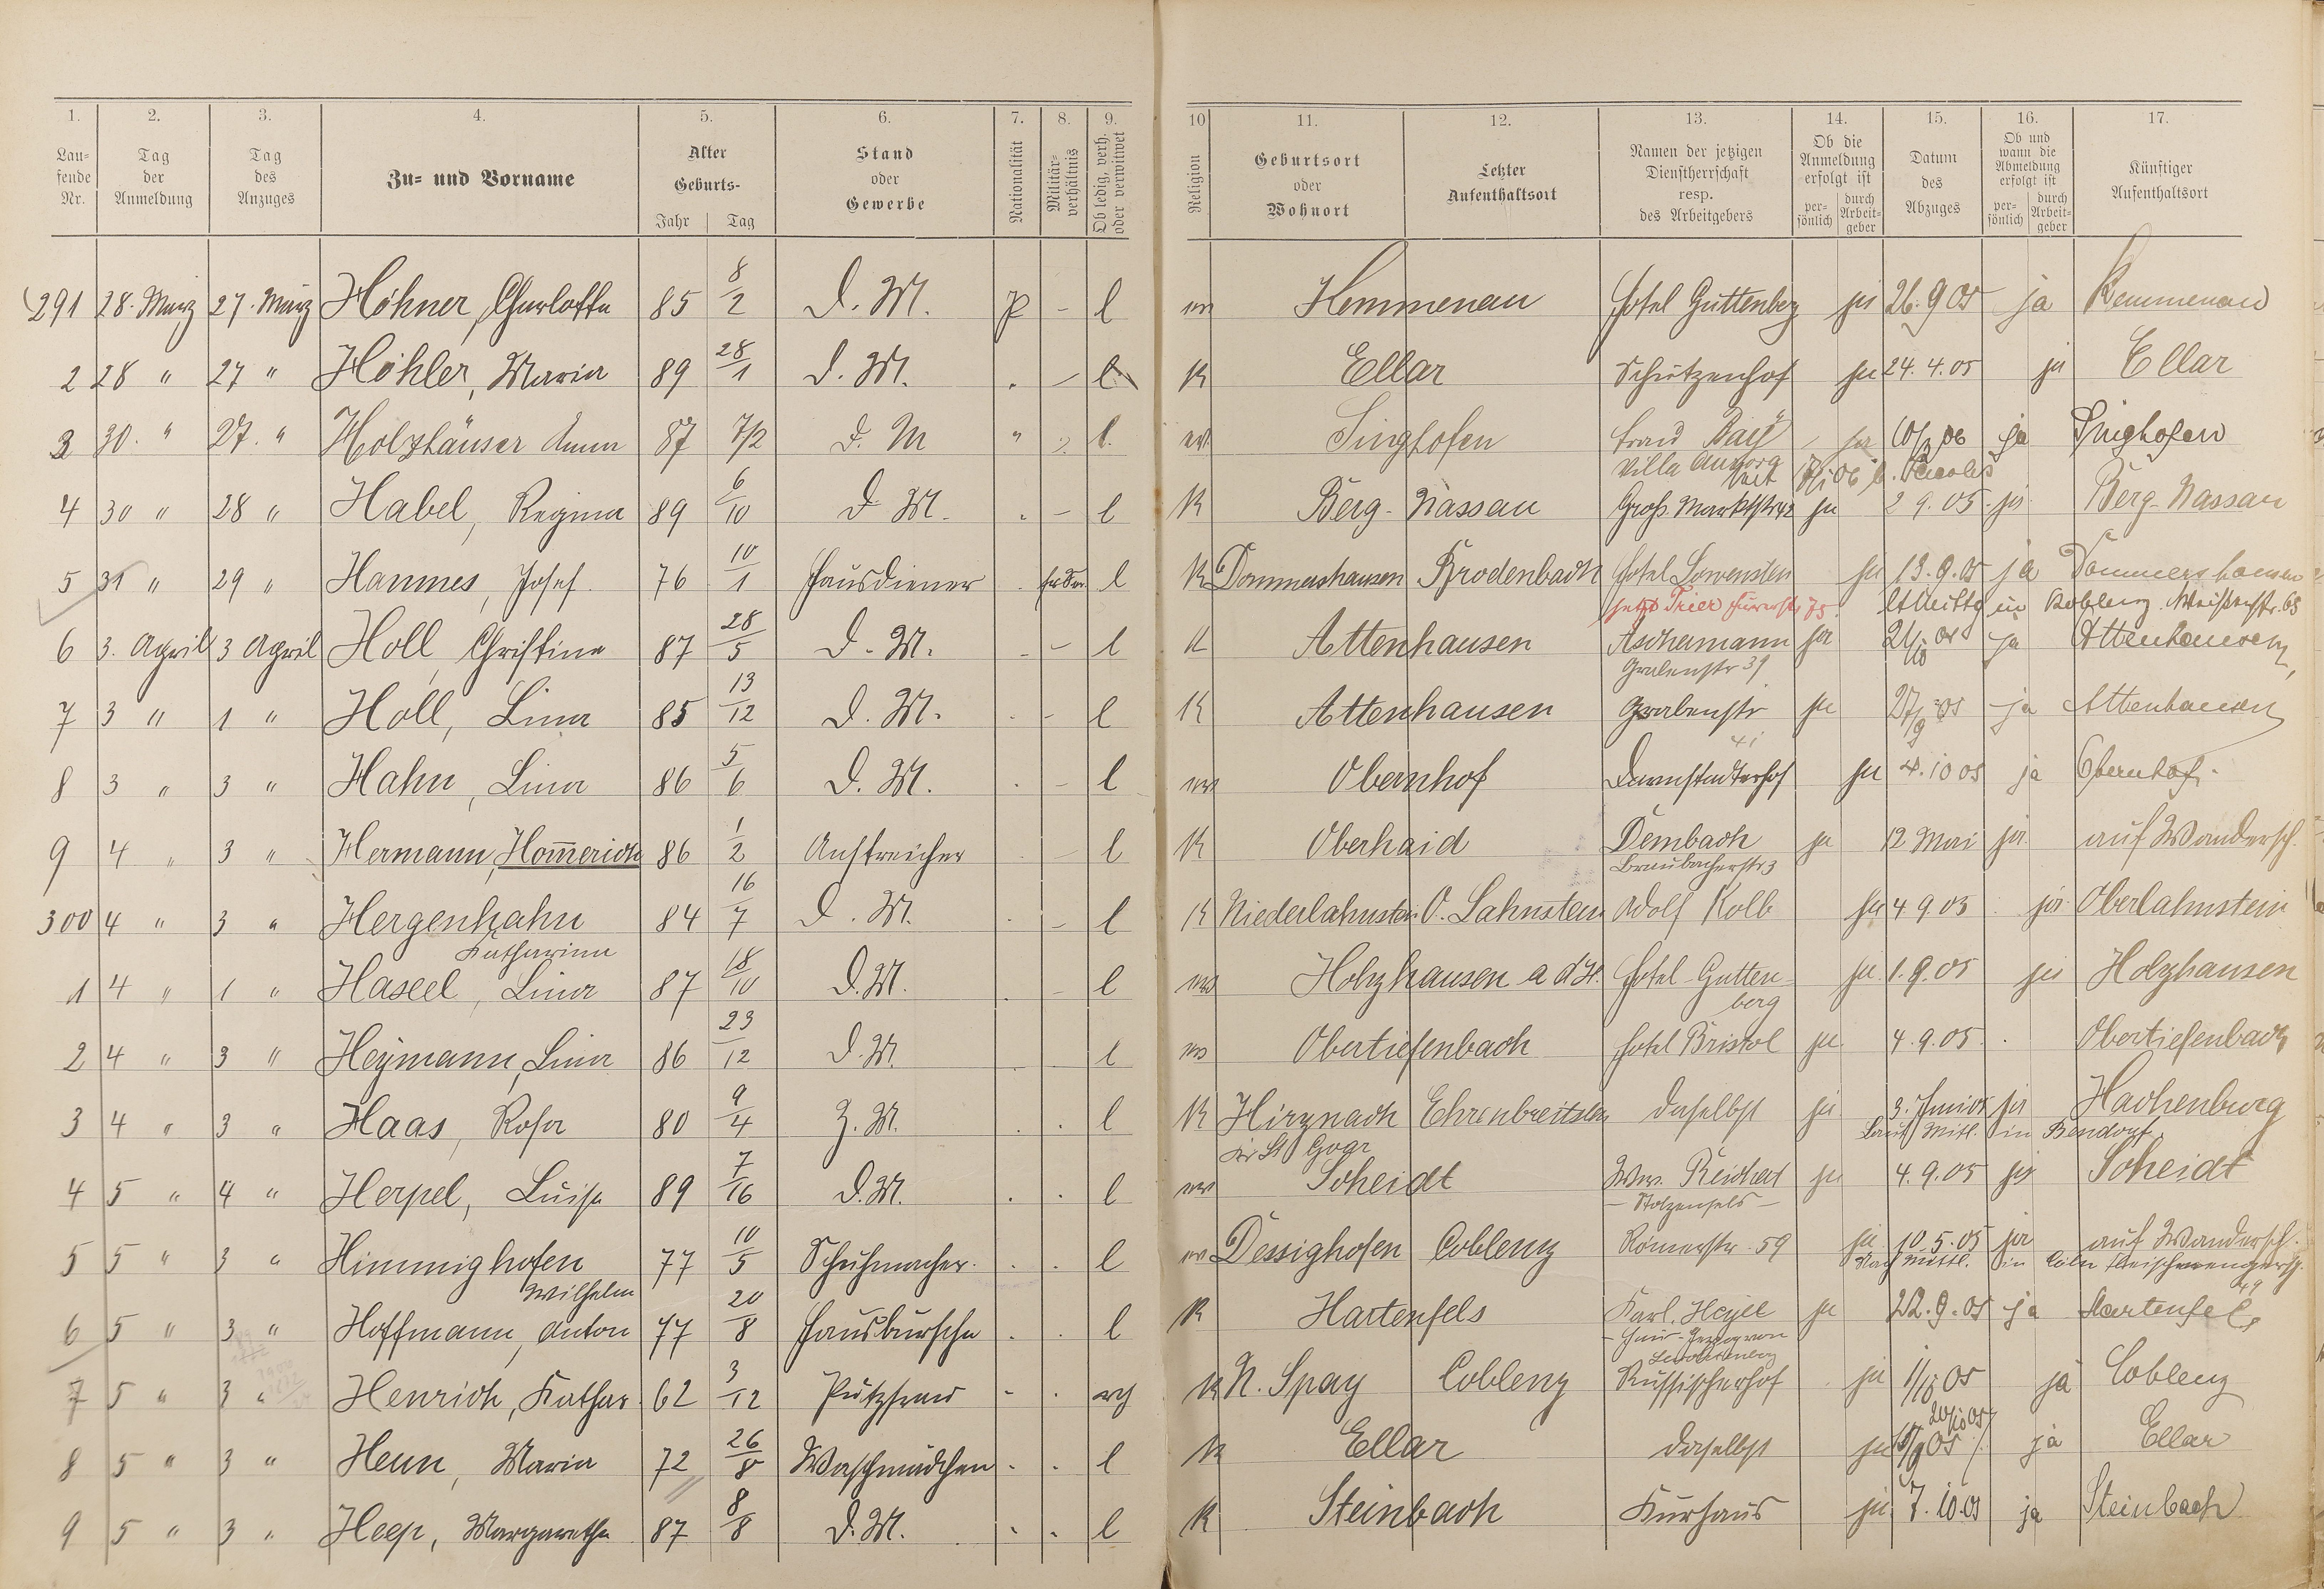 1. 2. 3. 4. 5. 6. 7. 8. 9. 10 11. 12. 13. 14. 15. 16. 17.
Lau-fende Nr. Tag der Anmeldung Tag des Anzuges Zu- und Vorname Alter Geburts- Jahr Tag Stand oder Gewerbe Nationalität Militär-verhältnis Ob ledig, verh. oder verwitwet Religion Geburtsort oder Wohnort Letzter Aufenthaltsort Namen der jetzigen Dienstherrschaft resp. des Arbeitgebers Ob die Anmeldung erfolgt ist per-sönlich durch Arbeit-geber Datum des Abzuges Ob und wann die Abmeldung erfolgt ist per-sönlich durch Arbeit-geber Künftiger Aufenthaltsort
291 28. März 27. März Höhner, Charlotte 85 8/2 D. M. P - l Hotel Guttenberg ja 26.9 05 ja Kemmenau
2 28 " 27 " Höhler, Maria 89 28/1 D. M. - l K Ellar Schützenhof ja 24.4.05 ja Ellar
3 30. " 27. " Holzhäuser Anna 87 7/2 D. M " l. Singhofen ja ja Singhofen
Villa
4 30 " 28 " Habel, Regina 89 6/10 D M. - l K Berg-Nassau Groß. Marktstr 42 ja 2 9.05. ja Berg-Nassau
5 31 " 29 " Hannes, Josef. 76 10/1 Hausdiener l K Dommershausen Brodenbach Hotel Löwenstein ja 13.9.05 ja Dommershausen
jetzt Trier 75. lt Mittg in Koblenz 68
6 3. April 3 April Holl Christine 87 28/5 D. M. - l K Attenhausen Aschemann ja ja Attenhausen
Grabenstr 39
7 3 " 1 " Holl, Lina 85 13/12 D. M. - l K Attenhausen Grabenstr ja 27/9 05 ja Attenhausen
41
8 3 " 3 " Hahn, Lina 86 5/6 D. M. - l Obernhof Darmstädterhof ja 4.10 05 ja Obernhof.
9 4 " 3 " Hermann, Hom̄erich 86 1/2 Anstreicher - l K Oberhaid Dembach ja 12 Mai ja auf Wandersch.
Braubacherstr 3
300 4 " 3 " Hergenhahn 84 16/7 D. M. - l K Niederlahnstein O. Lahnstein Adolf Kolb ja 4 9 05 ja Oberlahnstein
Katharina
1 4 " 1 " Haseel, Lina 87 18/10 D. M. - l Holzhausen a d H. Hotel Gutten- ja 1.9.05 ja Holzhausen
berg
2 4 " 3 " Heymann, Lina 86 23/12 D. M. l Obertiefenbach Hotel Bristol ja 4.9.05. Obertiefenbach
3 4 " 3 " Haas, Rosa 80 9/4 Z. M. l K Hirznach Ehrenbreitstein daselbst ja 3. Juni 05 ja Hachenburg
Kr St Goar Laut Mitl. in Bendorf
4 5 " 4 " Herpel, Luise 89 7/16 D. M. l Scheidt Ww. Reichert ja 4.9.05 ja Scheidt
- Stolzenfels -
5 5 " 3 " Himmighofen 77 10/5 Schuhmacher. l Dessighofen Coblenz Römerstr. 59 ja 10.5.05 ja auf Wandersch.
Wilhelm Nach Mittl. in Cöln
49
6 5 " 3 " Hoffmann, Anton 77 20/8 Hausbursche l K Hartenfels Karl. Heyee ja 22.9.05 ja Hartenfels
7 5 " 3 " Henrich, Kathar. 62 3/12 Putzfrau - K N. Spay Coblenz Russischerhof ja 1/10 05 ja Coblenz
20/10 05
8 5 " 3 " Heun, Maria 72 26/8 Waschmädchen l K Ellar daselbst ja ja Ellar
9 5 " 3 " Heep, Margarethe 87 8/8 D. M. l K Steinbach Kurhaus ja 7.10.05 ja Steinbach